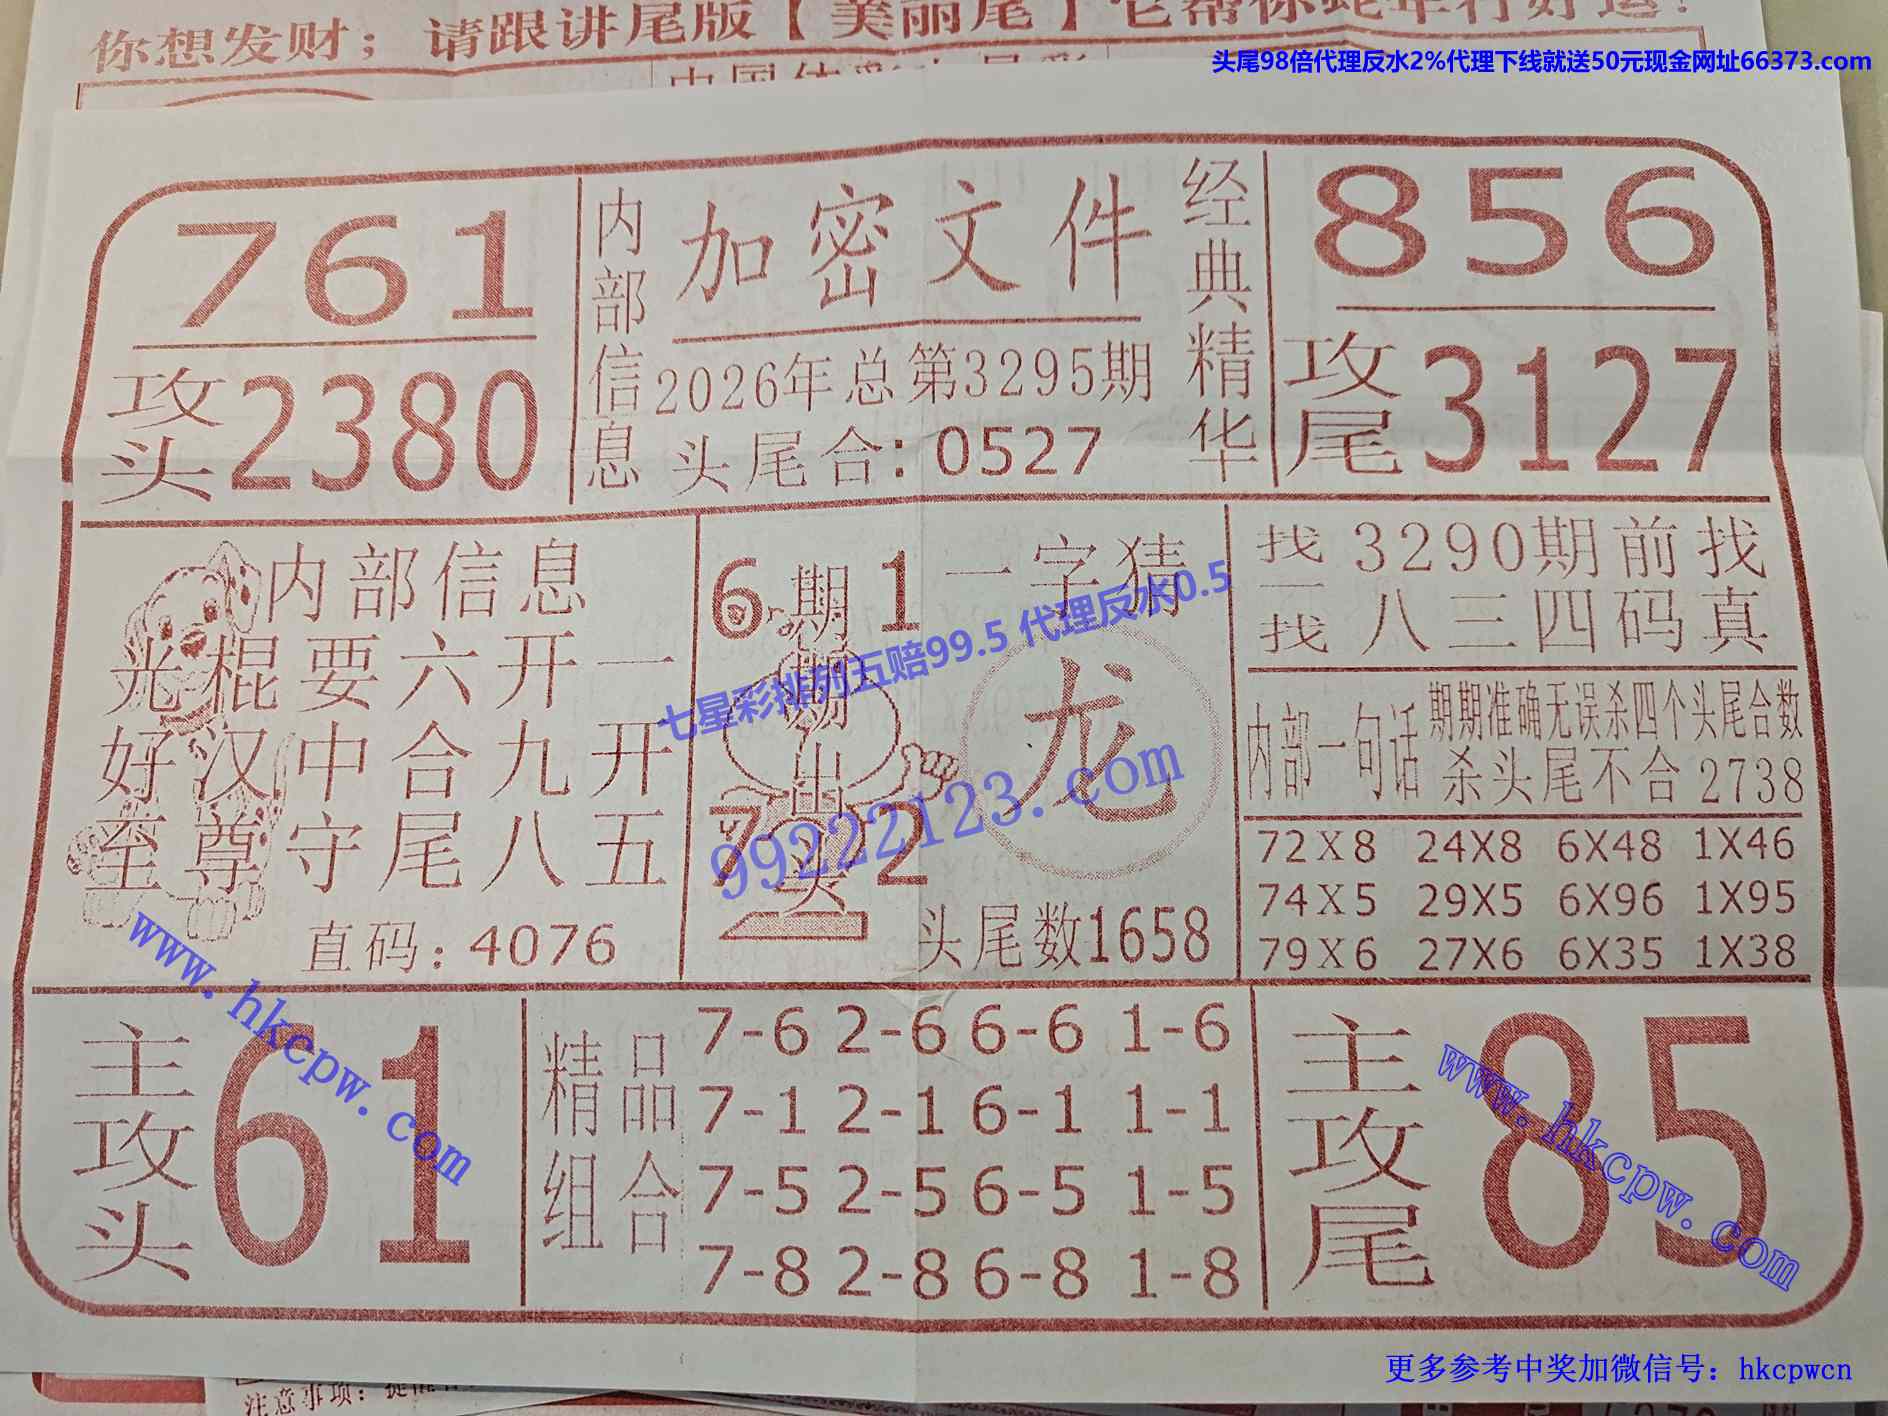 你想发财；请跟讲尾版【美丽尾】它帮你蛇年行好运！
头尾98倍代理反水2%代理下线就送50元现金网址66373.com
761
攻头2380
内部信息
加密文件
2026年总第3295期
头尾合：0527
经典精华
856
攻尾3127
内部信息
光棍要六开一
好汉中合九开
至尊守尾八五
直码：4076
6期1
期
出
7头2
一字猜
龙
头尾数1658
七星彩排列五赔99.5 代理反水0.5
99222123.com
找一找
3290期前找
八三四码真
内部一句话
期期准确无误杀四个头尾合数
杀头尾不合2738
72X8 24X8 6X48 1X46
74X5 29X5 6X96 1X95
79X6 27X6 6X35 1X38
www.hkcpw.com
主攻头
61
精品组合
7-6 2-6 6-6 1-6
7-1 2-1 6-1 1-1
7-5 2-5 6-5 1-5
7-8 2-8 6-8 1-8
主攻尾
85
www.hkcpw.com
注意事项：提醒
更多参考中奖加微信号：hkcpwcn